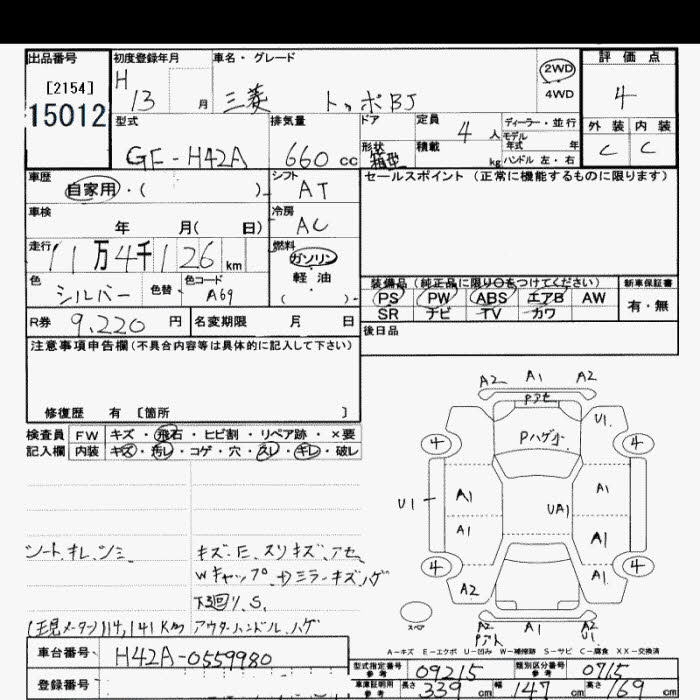 出品番号 初度登録年月 車名・グレード 2WD 評価点
[2154] H 13 月 三菱 トッポBJ 4WD 4
15012 型式 排気量 ドア 定員 4 人 ディーラー・並行 外装 内装
モデル年式 年
GF-H42A 660 cc 形状 箱型 積載 kg ハンドル 左・右 C C
車歴 自家用・( ) シフト AT セールスポイント (正常に機能するものに限ります)
車検 年 月( 日) 冷房 AC
走行 11万4千126km 燃料 ガソリン
軽油
( )
色 シルバー 色替 色コード A69 装備品 (純正品に限り○をつけてください) 新車保証書
PS PW ABS エアB AW 有・無
SR ナビ TV カワ
R券 9,220 円 名変期限 月 日 後日品
注意事項申告欄(不具合内容等は具体的に記入して下さい)
修復歴 有 [箇所 ]
検査員 FW キズ・飛石・ヒビ割・リペア跡・×要
記入欄 内装 キズ・汚レ・コゲ・穴・スレ・キレ・破レ
A2 A1 A2
Pアセ
U1
4 Pハゲ小 4
U1 A1 UA1 A1
A1 A1
4 4
A2 A1
スペア
A2 A1 A2
Pアト U1
シート キレ、シミ キズ・E、スリキズ、アセ
Wキャップ ミラーキズハゲ
下回り、S、
(現メーター)114,141Km アウターハンドル、ハゲ
A-キズ E-エクボ U-凹み W-補修跡 S-サビ C-腐食 XX-交換済
車台番号 H42A-0559980
型式指定番号 参考 09215 類別区分番号 参考 0715
登録番号 車庫証明用 参考 長さ 339 cm 幅 147 cm 高さ 169 cm